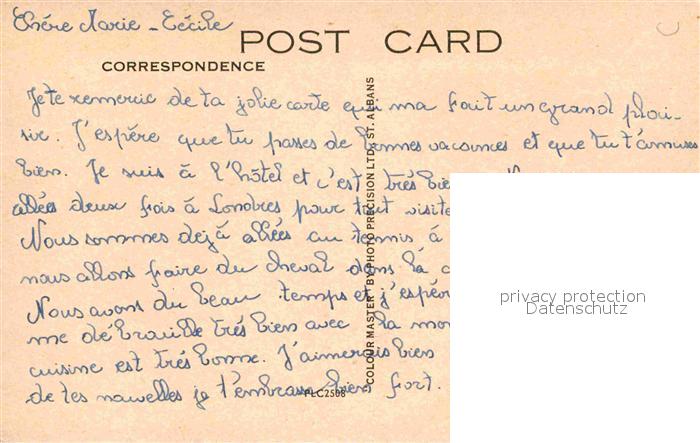 Chére Marie-Cécile
POST CARD
CORRESPONDENCE
Je te remercie de ta jolie carte qui ma fait un grand plai-
sir. J'espére que tu passes de bonnes vacances et que tu t'amuses
bien. Je suis á l'hôtel et c'est trés bie
allées deux fois á Londres pour tout visite
Nous sommes dejá allées au tennis á
nous allons faire du cheval dans la c
Nous avons du beau temps et j'espér
me débrouille trés bien avec la mon
cuisine est trés bonne. J'aimerais bien
de tes nouvelles je t'embrasse bien fort.
COLOUR MASTER BY PHOTO PRECISION LTD., ST. ALBANS
PLC2508
privacy protection
Datenschutz